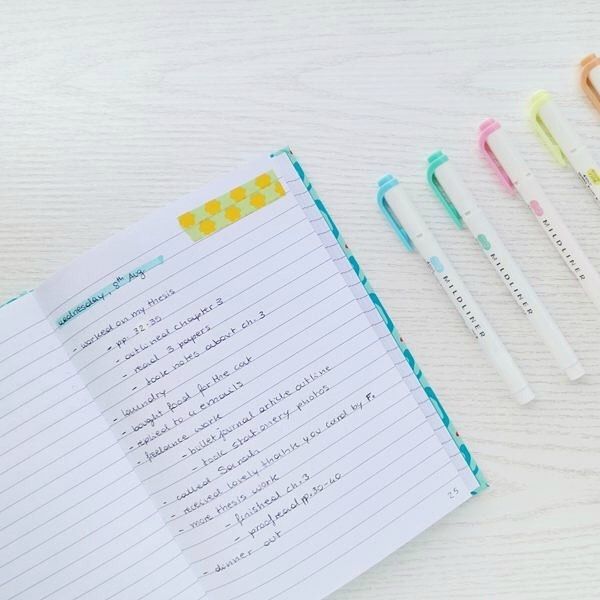 wednesday, 8th Aug
- worked on my thesis
- pp. 32-35
- outlined chapter 3
- read 3 papers
- took notes about ch.3
- laundry
- bought food for the cat
- replied to 2 emails
- freelance work
- bullet journal article outline
- took stationery photos
- called Sarah
- received lovely thank you card by F.
- more thesis work
- finished ch.3
- proofread pp.30-40
- dinner out
25
MILDLINER
MILDLINER
MILDLINER